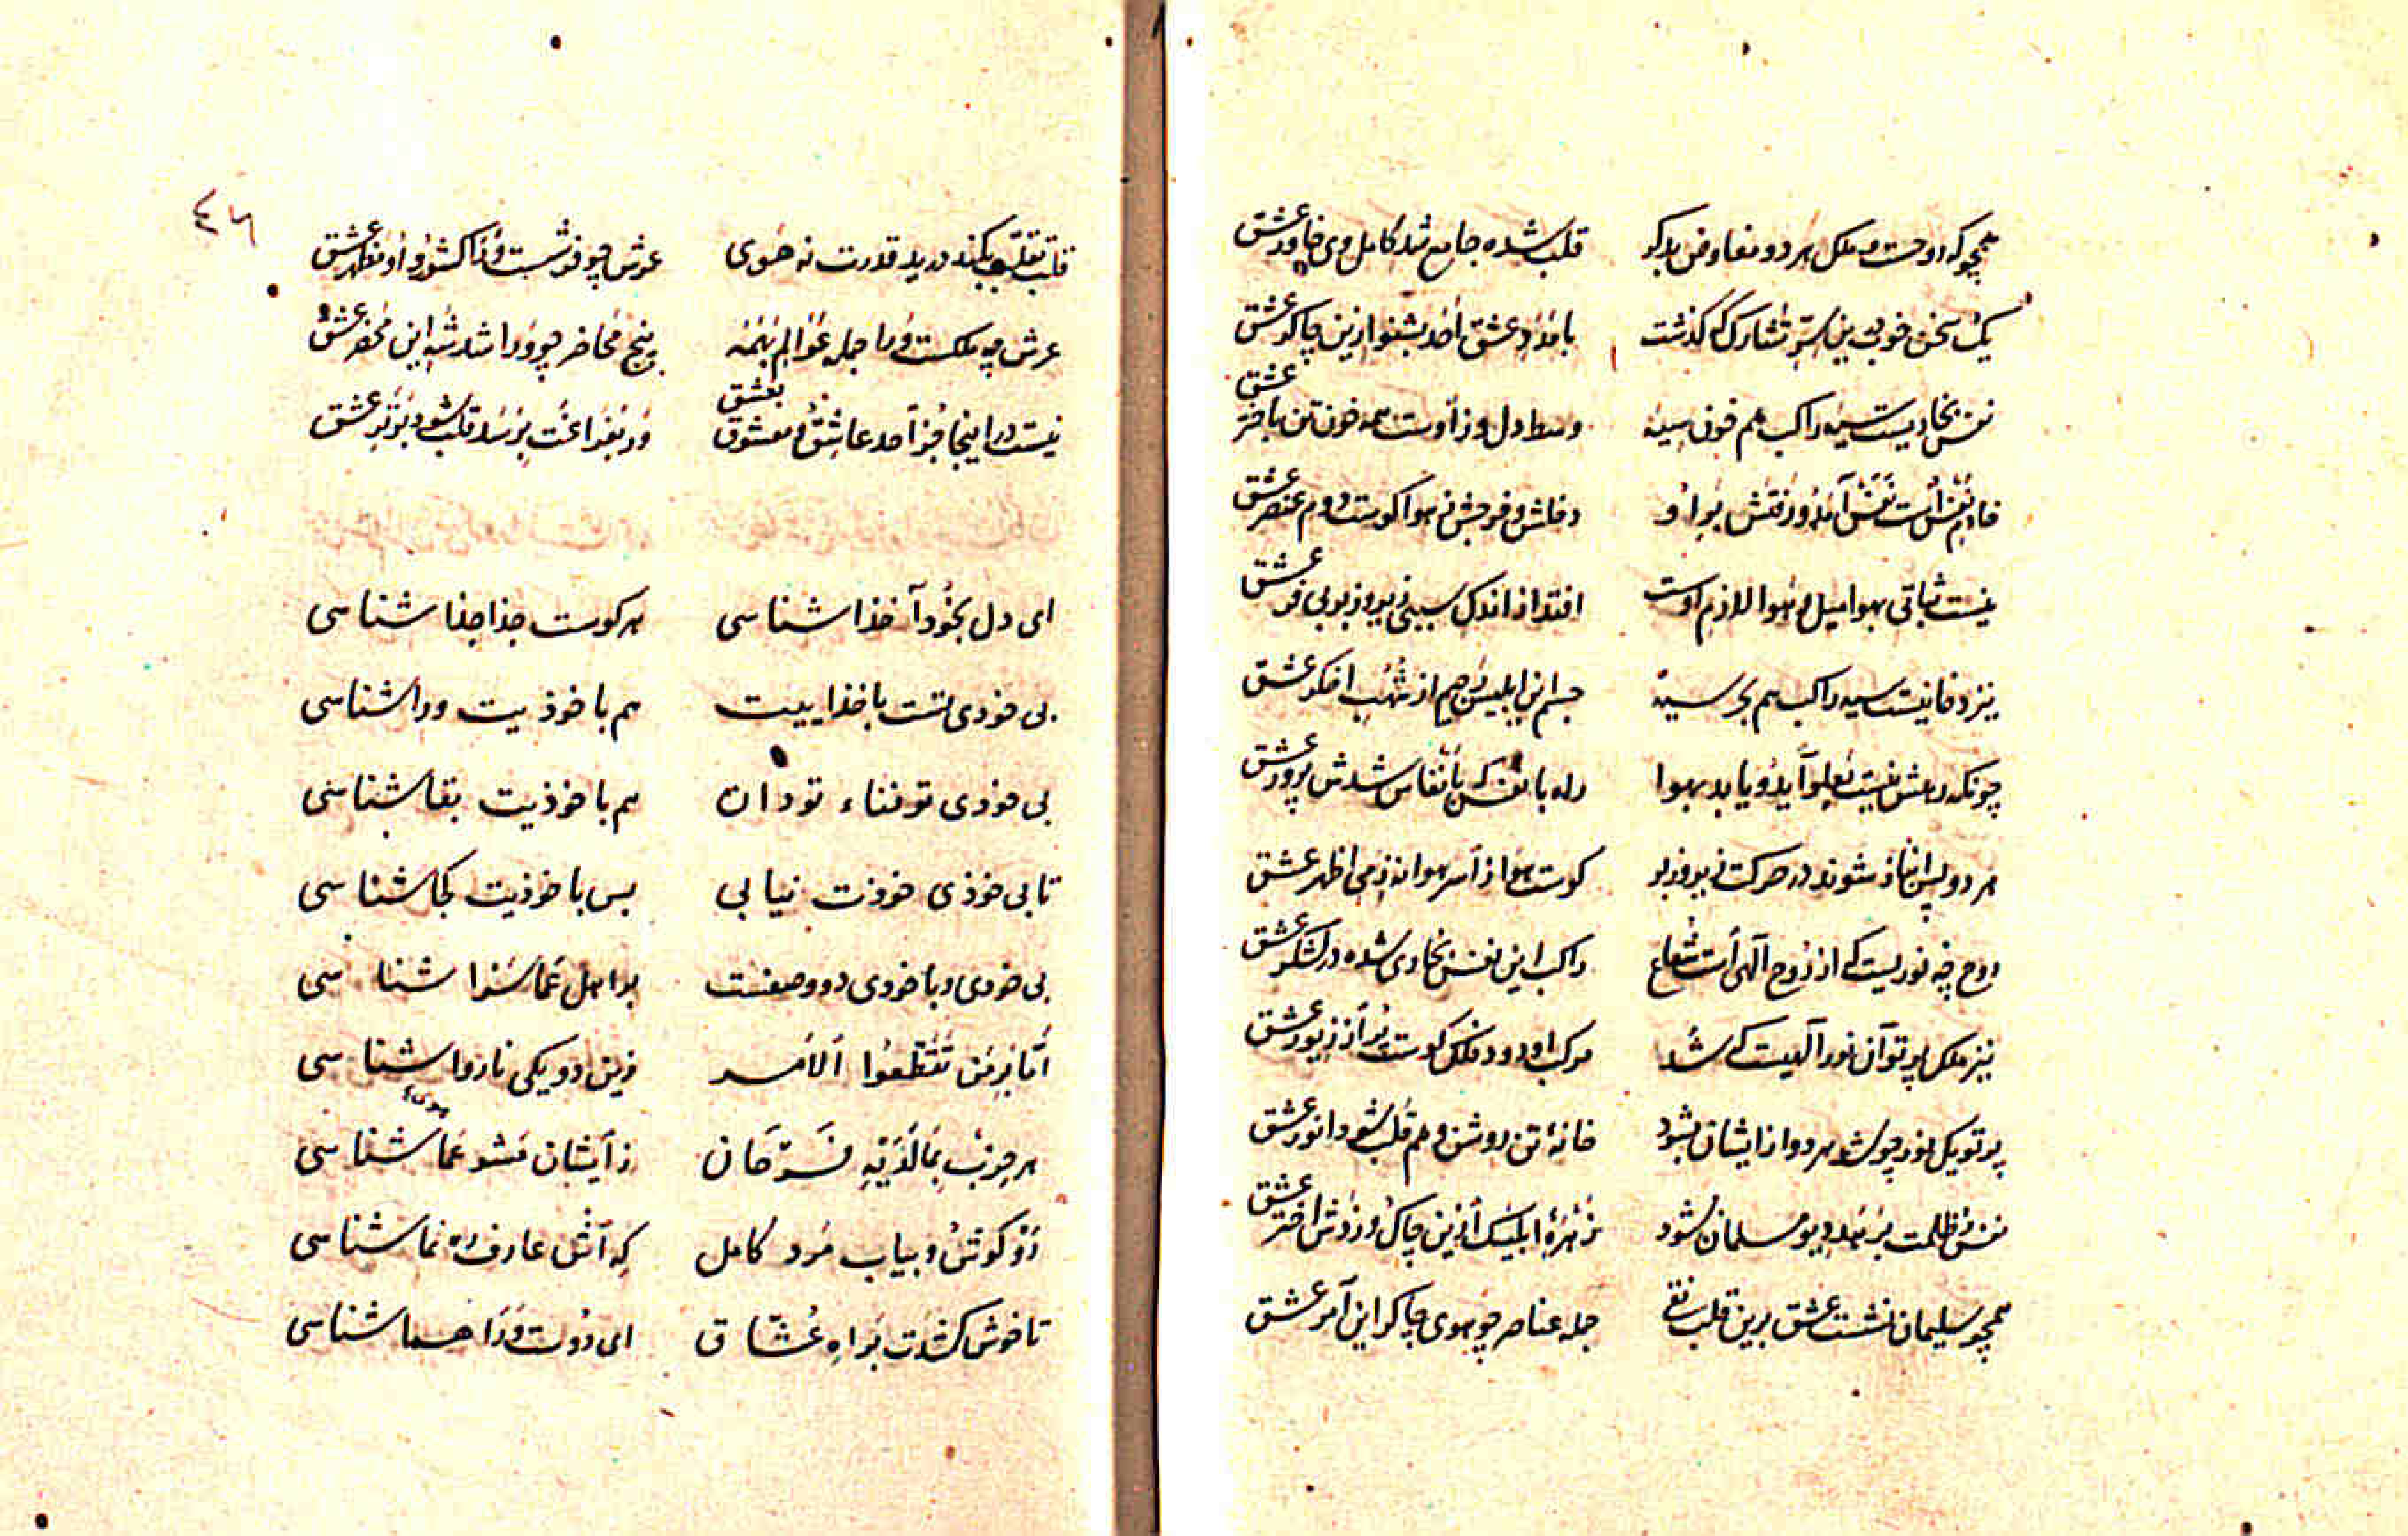 همچو که روحست و ملک هر دو مفاوض بدکر قلب شده جامع شد کامل وی خاور عشق
یک سخن خوب درین سر تشارک که گذشت با مدد عشق احد بشنو ازین چاکر عشق
نفس بخاریست سیه راکب هم خون سیه وسط دل وز اوست همه خون تن باختر عشق
خادم نفس است نفس آمد و رفتش بر او
نیست ثباتی بهوا میل هوا لازم اوست افتد از اندک سببی زیر و زبر بی فر عشق
نیز دخانیست سیه راکب هم بحر سیه جسم این ابلیس رجیم از شهب اخکر عشق
چونکه رهش نیست بعلو آید و یابد بهوا راه با نفس که بانفاس شدش پرور عشق
هر دو پس انباز شوند در حرکت زیر و زبر کوست هوا از اسر هوا اندر می اظهر عشق
روح چه نوریست که از روح الهی است شعاع راکب این نفس بخاری شده در لشکر عشق
نیز ملک پرتو آن نور الهیت که شد مرکب او دود فلک کوست پر از زیور عشق
پرتو یک نور چو شد هر دو از ایشان بشود خانهٔ تن روشن و هم قلب شود انور عشق
نفس ز ظلمت برهد دیو مسلمان بشود زهرهٔ ابلیسک ازین چاک وزدش اختر عشق
همچو سلیمان نشست عشق برین قلب جمله عناصر چو هوی چاکر این آمر عشق
قلب تقلب بکند در ید قدرت نه هوی عرش چو فرشست ورا کشور و او مظهر عشق
عرش چه ملکست ورا جمله عوالم بهمه پنج محاضر چو ورا شد شه این محضر عشق
نیست در اینجا جز احد عاشق و معشوق بعشق ور بفراغت برسد قلب شود بوبر عشق
ای دل بخود آ خدا شناسی هر کوست جدا جدا شناسی
بی خودی تست با خداییت هم با خودیت ورا شناسی
بی خودی تو فناء تو دان هم با خودیت بقا شناسی
تا بی خودی خودت نیابی بس با خودیت کجا شناسی
بی خودی و با خودی دو وصفست بر اهل عما سزا شناسی
اما بزمن تقطعوا الامر زین دو یکی ناروا شناسی
هر حزب بما لدیه فرحان ز ایشان مشو عما شناسی
رو کوش و بیاب مرد کامل که آتش عارف ره نما شناسی
تا خوش کشدت براه عشاق ای دوست ورا هما شناسی
٤٦